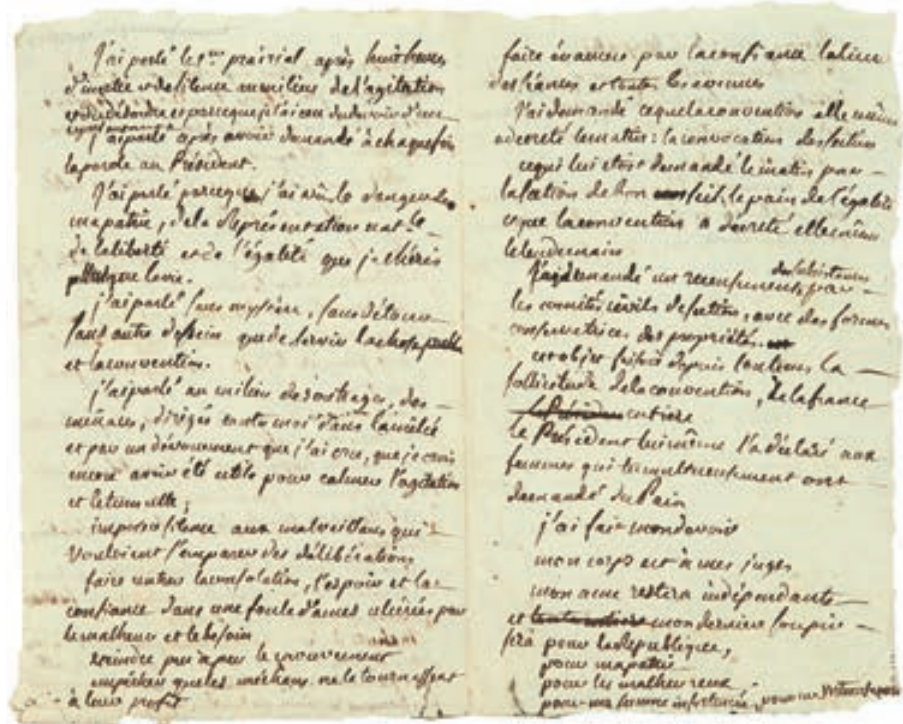 J'ai parlé le 1er prairial après huit heures
d'inertie et de silence au milieu de l'agitation
et du désordre et parceque j'ai cru du devoir d'un
j'ai parlé après avoir demandé à chaque fois
la parole au Président.
J'ai parlé parceque j'ai vu le danger de
ma patrie, de la Représentation natle
de la liberté et de l'égalité que je chéris
plus que la vie.
j'ai parlé sans mystère, sans détour
sans autre dessein que de servir la chose publi
et la convention.
j'ai parlé au milieu des outrages, des
menaces, dirigés contre moi dans la mêlée
et par un dévouement que j'ai cru, que je crois
encore avoir été utile pour calmer l'agitation
et le tumulte;
imposer silence aux malveillans qui
vouloient s'emparer des délibérations
faire entrer la consolation, l'espoir et la
confiance dans une foule d'ames ulcérées par
le malheur et le besoin
éteindre peu à peu le mouvement
empêcher que les méchans ne le tournassent
à leur profit
faire évacuer par la confiance la salle
des séances et toutes les avenues
J'ai demandé ce que la convention elle même
a décreté le matin: la convocation des sections
ce qui lui étoit demandé le matin par
la section de bon conseil, le pain de l'égalité
et que la convention a décreté elle même
le lendemain
J'ai demandé un recensement des subsistances par
les comités civils de sections, avec des formes
conservatrices des propriétés.
cet objet faisoit depuis longtems la
sollicitude de la convention, de la france
entiere
le Président lui même l'a déclaré aux
femmes qui tumultueusement ont
demandé du Pain
j'ai fait mon devoir
mon corps est à mes juges
mon ame restera indépendante
et mon dernier soupir
sera pour la République,
pour ma patrie
pour les malheureux
pour ma femme infortunée, pour